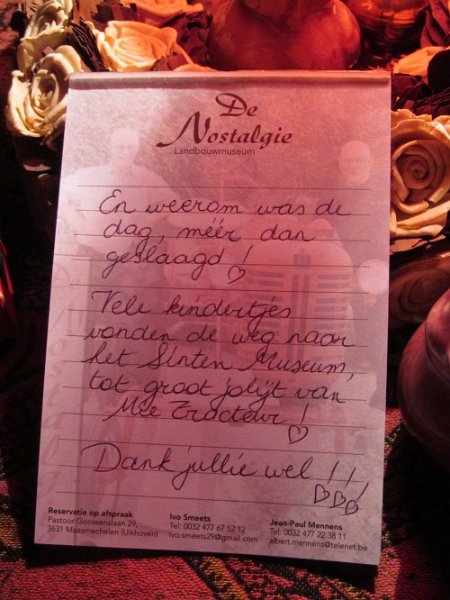 De
Nostalgie
Landbouwmuseum
En weerom was de
dag, méér dan
geslaagd!
Vele kindertjes
vonden de weg naar
het Sinten Museum,
tot groot jolijt van
Mee Tracteur!
Dank jullie wel !!!
Reservatie op afspraak
Pastoor Goossenslaan 29,
3631 Maasmechelen (Uikhoven)
Ivo Smeets
Tel: 0032 477 67 52 12
Ivo.smeets29@gmail.com
Jean-Paul Mennens
Tel: 0032 477 22 38 11
albert.mennens@telenet.be